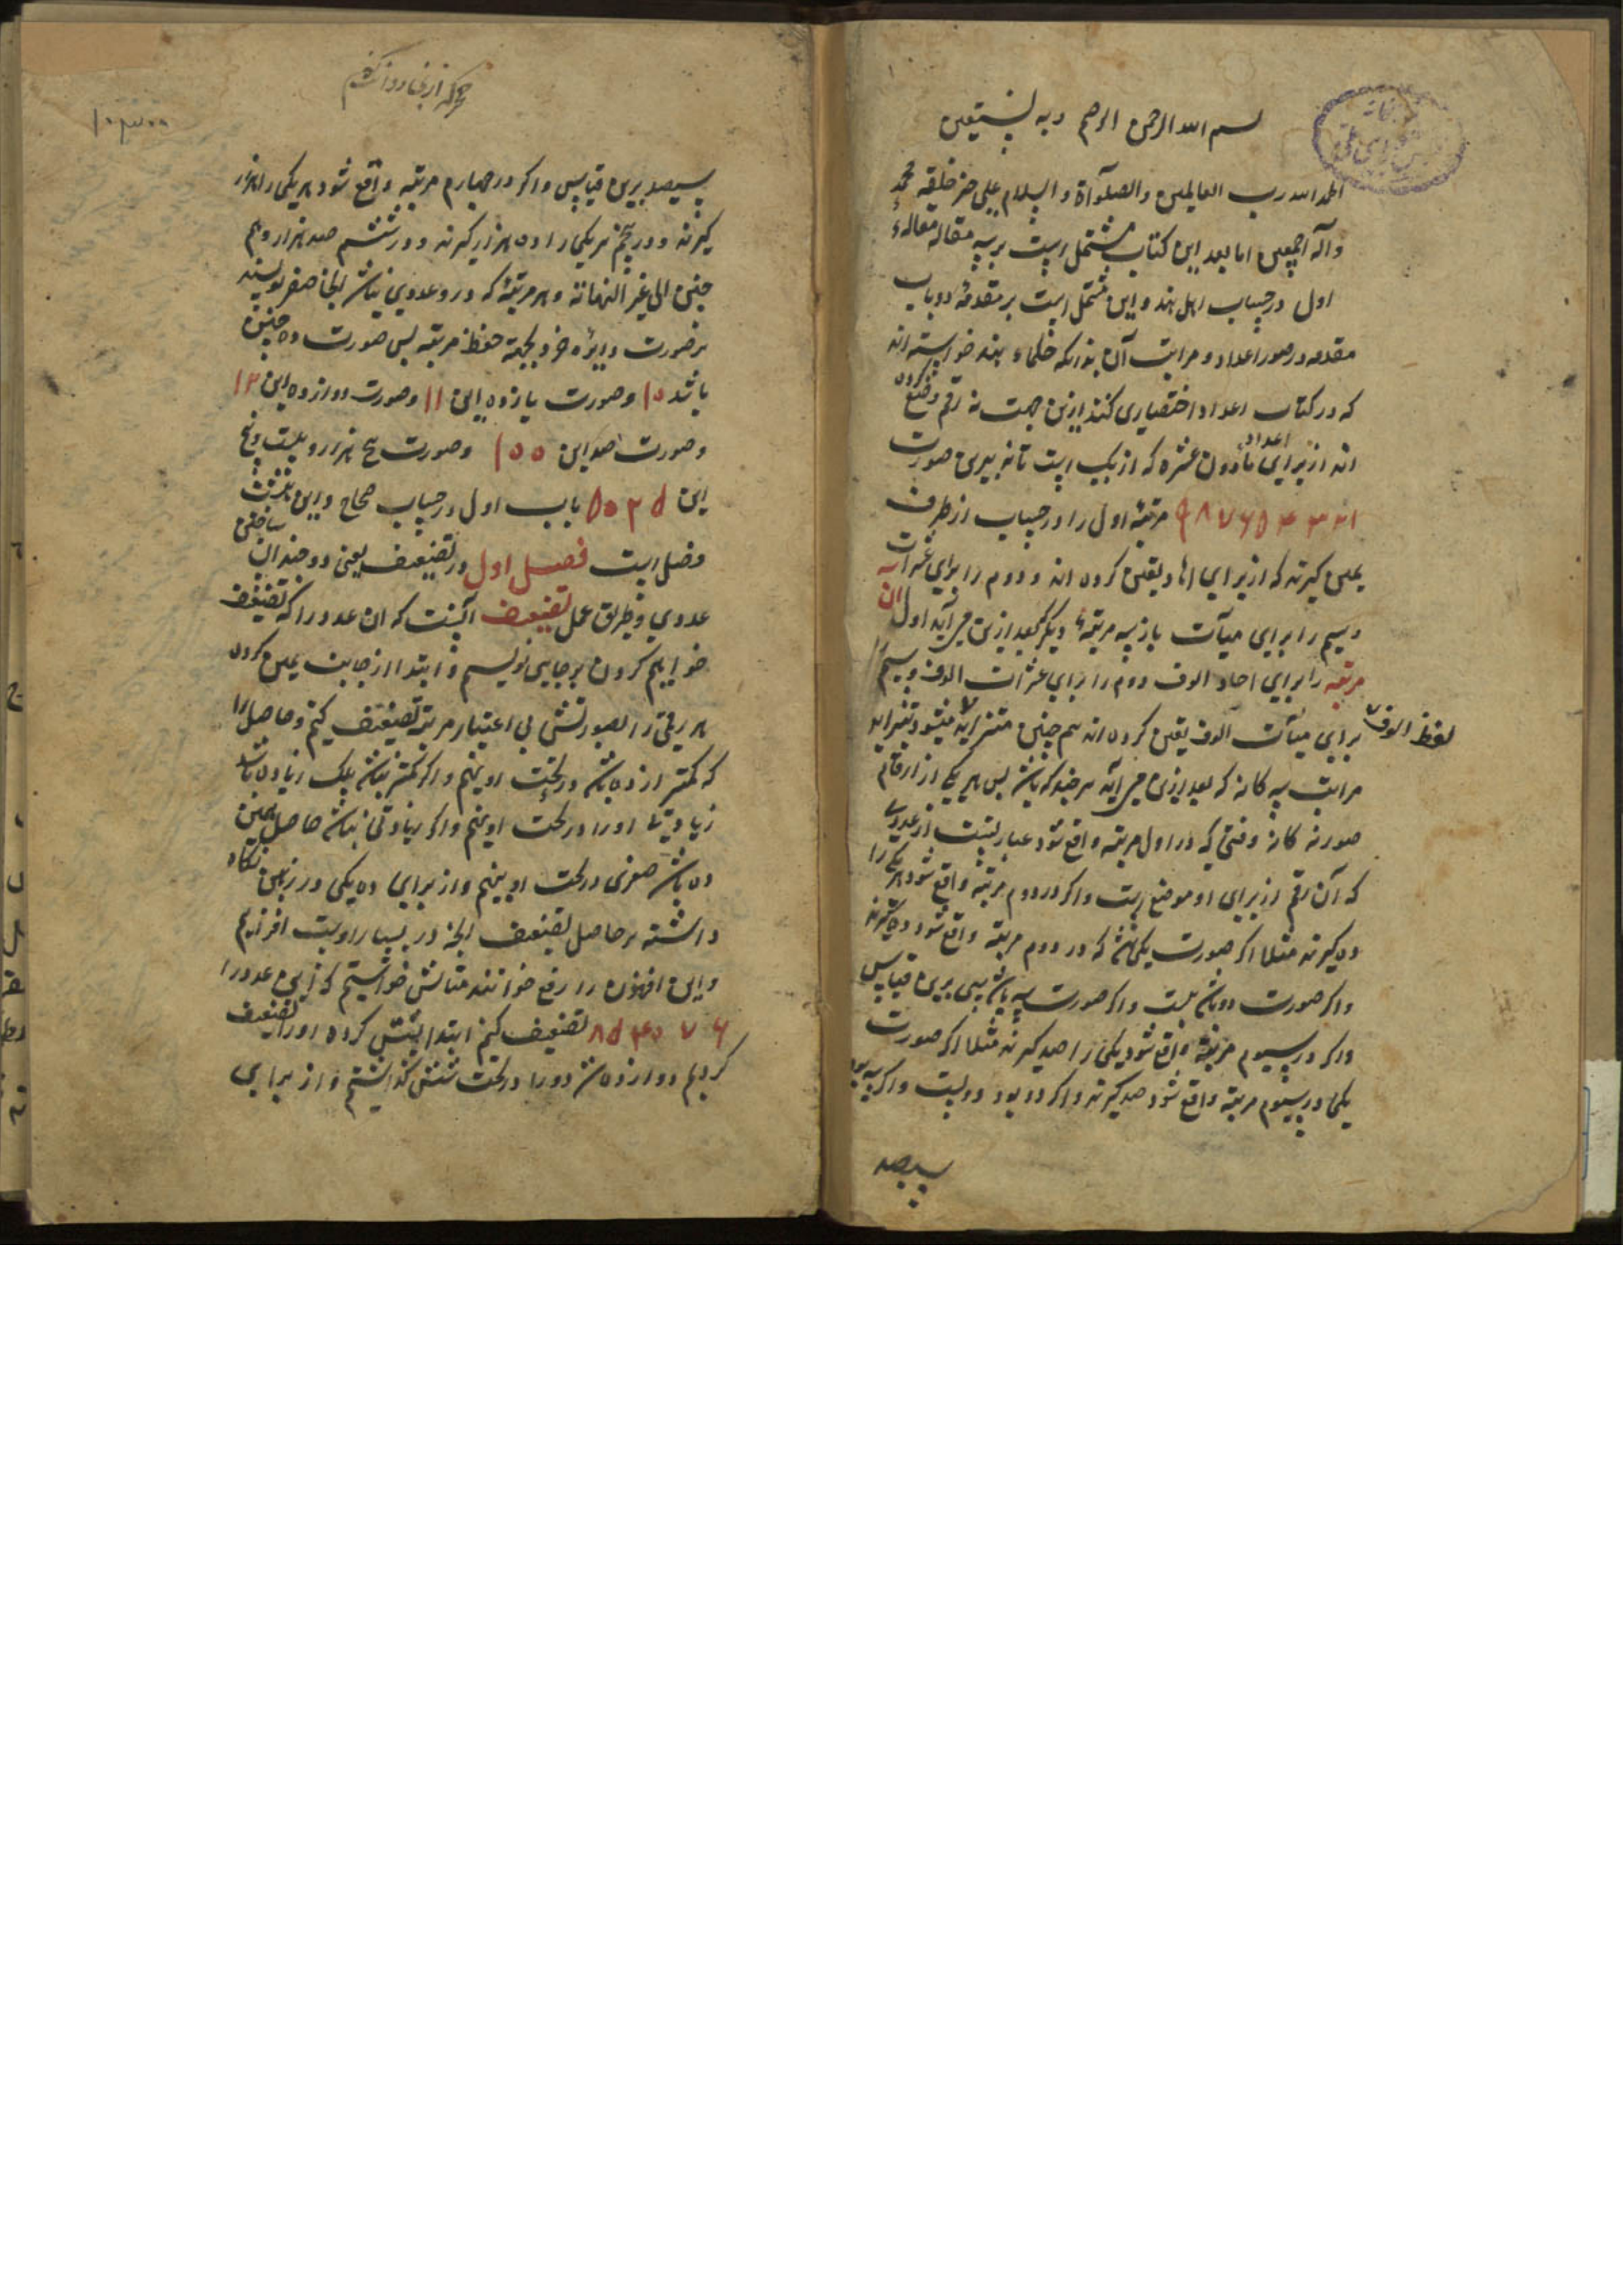 بسم الله الرحمن الرحیم و به نستعین
الحمد لله رب العالمین والصلوآة والسلام علی خیر خلقه محمد
وآله اجمعین اما بعد این کتاب مشتمل است بر سه مقاله مقالهء
اول در حساب اهل هند و این مشتمل است بر مقدمه و دو باب
مقدمه در صور اعداد و مراتب آن بدانکه حکماء هند خواسته اند
که در کتاب اعداد اختصاری کنند ازین جهت نه رقم وضع کرده
اند از برای اعداد ما دون عشره که از یک است تا نه بدین صورت
۱ ۲ ۳ ۴ ۵ ۶ ۷ ۸ ۹ مرتبهٔ اول را در حساب از طرف
یمین گیرند که از برای احاد تعین کرده اند و دوم را برای عشرات
و سیم را برای میآت باز سه مرتبهٔ دیگر که بعد ازین می آید اول آن
مرتبه را برای احاد الوف دوم را برای عشرات الوف و سیم را
برای میآت الوف تعین کرده اند هم چنین
لفظ الوف
مراتب سه کانه که بعد ازین می آید هر چند که باشد پس هر یکی از ارقام
صور نه کانه وقتی که در اول مرتبه واقع شود عبارتست از عددی
که آن رقم از برای او موضع است و اکر در دوم مرتبه واقع شود هر یکی را
ده گیرند مثلا اکر صورت یکی باشد که در دوم مرتبه واقع شود ده گیرند
و اکر صورت دو باشد بیست و اکر صورت سه باشد سی برین قیاس
و اکر در سیوم مرتبه واقع شود یکی را صد گیرند مثلا اکر صورت
یکی در سیوم مرتبه واقع شود صد گیرند و اکر دو بود دویست و اکر سه بود
سیصد
سیصد برین قیاس و اکر در چهارم مرتبه واقع شود هر یکی را هزار
گیرند و در پنجم هر یکی را ده هزار گیرند و در ششم صد هزار و هم
چنین الی غیر النهایة و هر مرتبهٔ که درو عددی نباشد آنجا صفر نویسند
بر صورت دایره خرد بجهة حفظ مرتبه پس صورت ده چنین
باشد ۱۰ و صورت یازده این ۱۱ و صورت دوازده این ۱۲
و صورت صد این ۱۰۰ و صورت پنج هزار و بیست و پنج
این ۵۰۲۵ باب اول در حساب صحاح و این
فصل است فصل اول در تضعیف یعنی دو چندان ساختن
عددی و طریق عمل تضعیف آنست که ان عدد را که تضعیف
خواهیم کردن بر جایی نویسیم و ابتدا از جانب یمین کرده
هر رقمی را بصورتش بی اعتبار مرتبه تضعیف کنیم و حاصل را
که کمتر از ده باشد در تحت او نهیم و اکر کمتر نباشد بلک زیاده باشد
زیادتی او را در تحت او نهیم و اکر زیادتی نباشد حاصل همین
ده باشد صفری در تحت او نهیم و از برای ده یکی در ذهن نکاه
داشته بر حاصل تضعیف آنچه در یسار اوست افزائیم
و این افزودن را رفع خوانند مثالش خواستیم که این عدد را
۸۵۳۰۷۶ تضعیف کنیم ابتدا از شش کرده او را تضعیف
کردیم دوازده شد دو را در تحت شش گذاشتیم و از برای